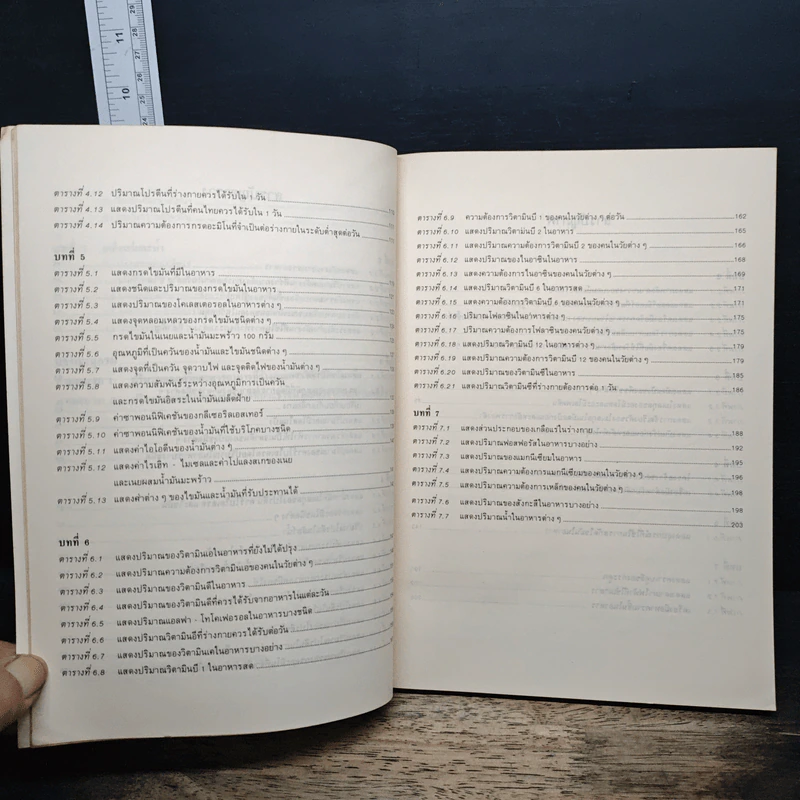 11
10
29
28
27
26
25
24
ตารางที่ 4.12 ปริมาณโปรตีนที่ร่างกายควรได้รับใน 1 วัน
ตารางที่ 4.13 แสดงปริมาณโปรตีนที่คนไทยควรได้รับใน 1 วัน
ตารางที่ 4.14 ปริมาณความต้องการกรดอะมิโนที่จำเป็นต่อร่างกายในระดับต่ำสุดต่อวัน
บทที่ 5
ตารางที่ 5.1 แสดงกรดไขมันที่มีในอาหาร
ตารางที่ 5.2 แสดงชนิดและปริมาณของกรดไขมันในอาหาร
ตารางที่ 5.3 แสดงปริมาณของโคเลสเตอรอลในอาหารต่าง ๆ
ตารางที่ 5.4 แสดงจุดหลอมเหลวของกรดไขมันชนิดต่าง ๆ
ตารางที่ 5.5 กรดไขมันในเนยและน้ำมันมะพร้าว 100 กรัม
ตารางที่ 5.6 อุณหภูมิที่เป็นควันของน้ำมันและไขมันชนิดต่าง ๆ
ตารางที่ 5.7 แสดงจุดที่เป็นควัน จุดวาบไฟ และจุดติดไฟของน้ำมันต่าง ๆ
ตารางที่ 5.8 แสดงความสัมพันธ์ระหว่างอุณหภูมิการเป็นควัน
และกรดไขมันอิสระในน้ำมันเมล็ดฝ้าย
ตารางที่ 5.9 ค่าซาพอนนิฟิเคชันของกลีเซอริลเอสเทอร์
ตารางที่ 5.10 ค่าซาพอนนิฟิเคชันของน้ำมันที่ใช้บริโภคบางชนิด
ตารางที่ 5.11 แสดงค่าไอโอดีนของน้ำมันต่าง ๆ
ตารางที่ 5.12 แสดงค่าไรเฮิท - ไมเซลและค่าโปแลงสเกของเนย
และเนยผสมน้ำมันมะพร้าว
ตารางที่ 5.13 แสดงค่าต่าง ๆ ของไขมันและน้ำมันที่รับประทานได้
บทที่ 6
ตารางที่ 6.1 แสดงปริมาณของวิตามินเอในอาหารที่ยังไม่ได้ปรุง
ตารางที่ 6.2 แสดงปริมาณความต้องการวิตามินเอของคนในวัยต่าง ๆ
ตารางที่ 6.3 แสดงปริมาณวิตามินดีในอาหาร
ตารางที่ 6.4 แสดงปริมาณวิตามินดีที่ควรได้รับจากอาหารในแต่ละวัน
ตารางที่ 6.5 แสดงปริมาณแอลฟา - โทโคเฟอรอลในอาหารบางชนิด
ตารางที่ 6.6 แสดงปริมาณวิตามินอีที่ร่างกายควรได้รับต่อวัน
ตารางที่ 6.7 แสดงปริมาณของวิตามินเคในอาหารบางอย่าง
ตารางที่ 6.8 แสดงปริมาณวิตามินบี 1 ในอาหารสด
ตารางที่ 6.9 ความต้องการวิตามินบี 1 ของคนในวัยต่าง ๆ ต่อวัน 162
ตารางที่ 6.10 แสดงปริมาณวิตามินบี 2 ในอาหาร 165
ตารางที่ 6.11 แสดงความต้องการวิตามินบี 2 ของคนในวัยต่าง ๆ 166
ตารางที่ 6.12 แสดงปริมาณของไนอาซินในอาหาร 168
ตารางที่ 6.13 แสดงความต้องการไนอาซินของคนในวัยต่าง ๆ 169
ตารางที่ 6.14 แสดงปริมาณวิตามินบี 6 ในอาหารสด 171
ตารางที่ 6.15 แสดงความต้องการวิตามินบี 6 ของคนในวัยต่าง ๆ 171
ตารางที่ 6.16 ปริมาณโฟลาซินในอาหารต่าง ๆ 175
ตารางที่ 6.17 ปริมาณความต้องการโฟลาซินของคนในวัยต่าง ๆ 175
ตารางที่ 6.18 แสดงปริมาณวิตามินบี 12 ในอาหารต่าง ๆ 179
ตารางที่ 6.19 แสดงปริมาณความต้องการวิตามินบี 12 ของคนในวัยต่าง ๆ 179
ตารางที่ 6.20 แสดงปริมาณวิตามินซีในอาหาร 185
ตารางที่ 6.21 แสดงปริมาณวิตามินซีที่ร่างกายต้องการต่อ 1 วัน 186
บทที่ 7
ตารางที่ 7.1 แสดงส่วนประกอบของเกลือแร่ในร่างกาย 188
ตารางที่ 7.2 แสดงปริมาณฟอสฟอรัสในอาหารบางอย่าง 192
ตารางที่ 7.3 แสดงปริมาณของแมกนีเซียมในอาหาร 195
ตารางที่ 7.4 แสดงปริมาณความต้องการแมกนีเซียมของคนในวัยต่าง ๆ 196
ตารางที่ 7.5 แสดงปริมาณความต้องการเหล็กของคนในวัยต่าง ๆ 198
ตารางที่ 7.6 แสดงปริมาณของสังกะสีในอาหารบางอย่าง 198
ตารางที่ 7.7 แสดงปริมาณน้ำในอาหารต่าง ๆ 203